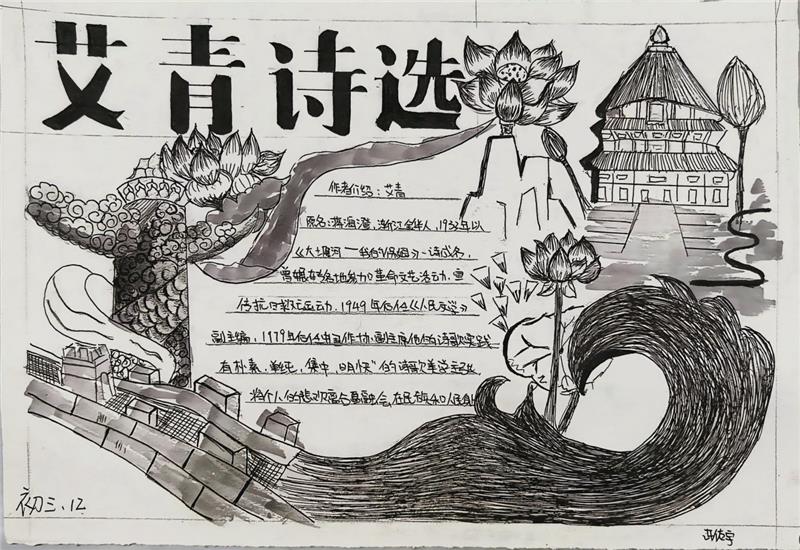 艾青诗选
作者介绍：艾青
原名:蒋海澄，浙江金华人，1932年以
《大堰河——我的保姆》一诗成名，
曾辗转各地参加革命文艺活动，宣
传抗日救亡运动，1949年后任《人民文学》
副主编，1979年后任中国作协副主席他的诗歌实践
有朴素，单纯，集中，明快的诗歌美学
将个人的悲欢融合 在民族和人民的
初三、12